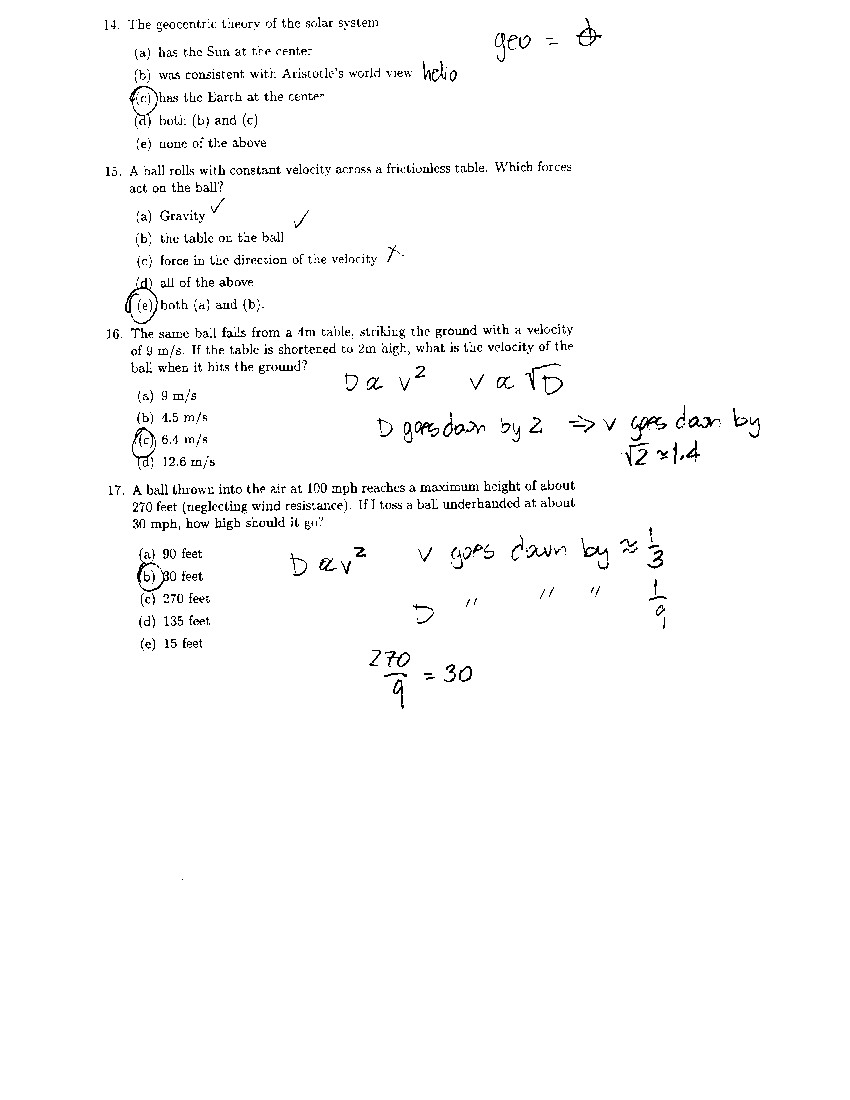 14. The geocentric theory of the solar system
geo = ⊕
(a) has the Sun at the center
(b) was consistent with Aristotle's world view helio
(c) has the Earth at the center
(d) both (b) and (c)
(e) none of the above
15. A ball rolls with constant velocity across a frictionless table. Which forces
act on the ball?
(a) Gravity ✓
(b) the table on the ball ✓
(c) force in the direction of the velocity ✗
(d) all of the above
(e) both (a) and (b).
16. The same ball falls from a 4m table, striking the ground with a velocity
of 9 m/s. If the table is shortened to 2m high, what is the velocity of the
ball when it hits the ground?
D ∝ v² v ∝ √D
(a) 9 m/s
(b) 4.5 m/s
D goes down by 2 ⇒ v goes down by
(c) 6.4 m/s
√2 ≈ 1.4
(d) 12.6 m/s
17. A ball thrown into the air at 100 mph reaches a maximum height of about
270 feet (neglecting wind resistance). If I toss a ball underhanded at about
30 mph, how high should it go?
(a) 90 feet
D ∝ v² v goes down by ≈ 1/3
(b) 30 feet
(c) 270 feet
D " " " 1/9
(d) 135 feet
(e) 15 feet
270/9 = 30